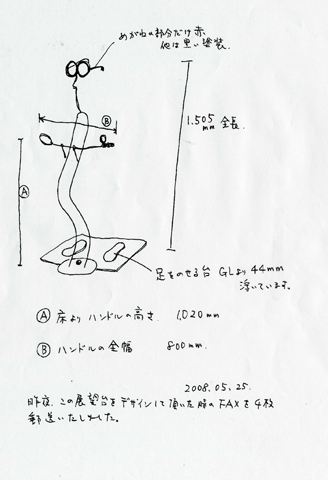 めがねの部分だけ赤
他は黒い塗装.
1.505
mm 全長.
Ⓑ
Ⓐ
足をのせる台 GLより 44mm
浮いています.
Ⓐ 床より ハンドルの高さ. 1,020mm
Ⓑ ハンドルの全幅 800mm.
2008.05.25.
昨夜、この展望台をデザインして頂いた時の FAXを4枚
郵送いたしました.